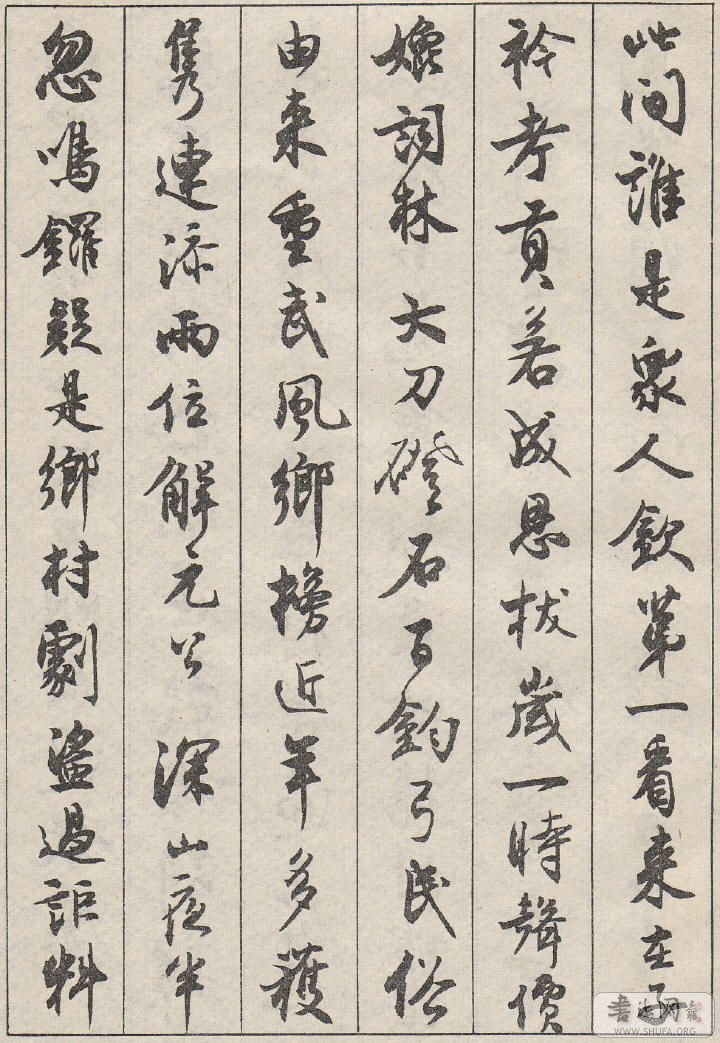 此間誰是眾人欽第一看来在子
衿考貢若成恩拔歲一時聲價
詞林 大刀磴石百鈞弓民俗
由来重武風鄉榜近年多獲
隽連添兩位解元公 深山夜半
忽鳴鑼疑是鄉村劇盜過詎料
书法网
WWW.SHUFA.ORG